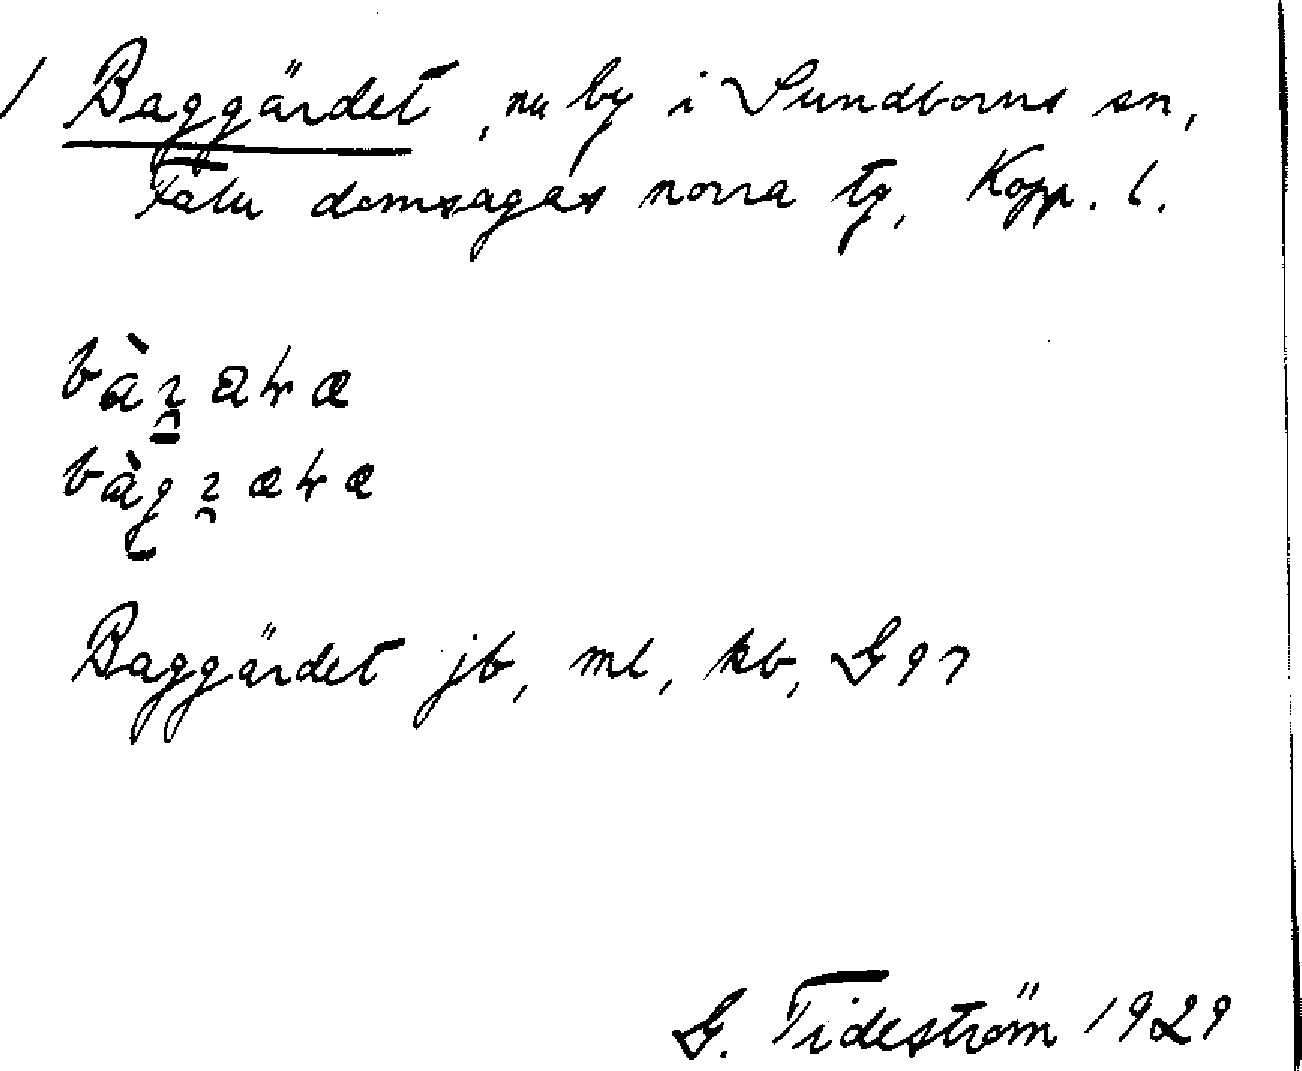 1 Baggärdet, nu by i Sundborns sn,
Falu domsagas norra tg, Kopp. l.
Baggärdet jb, ml, kb, G 97
G. Tideström 1929